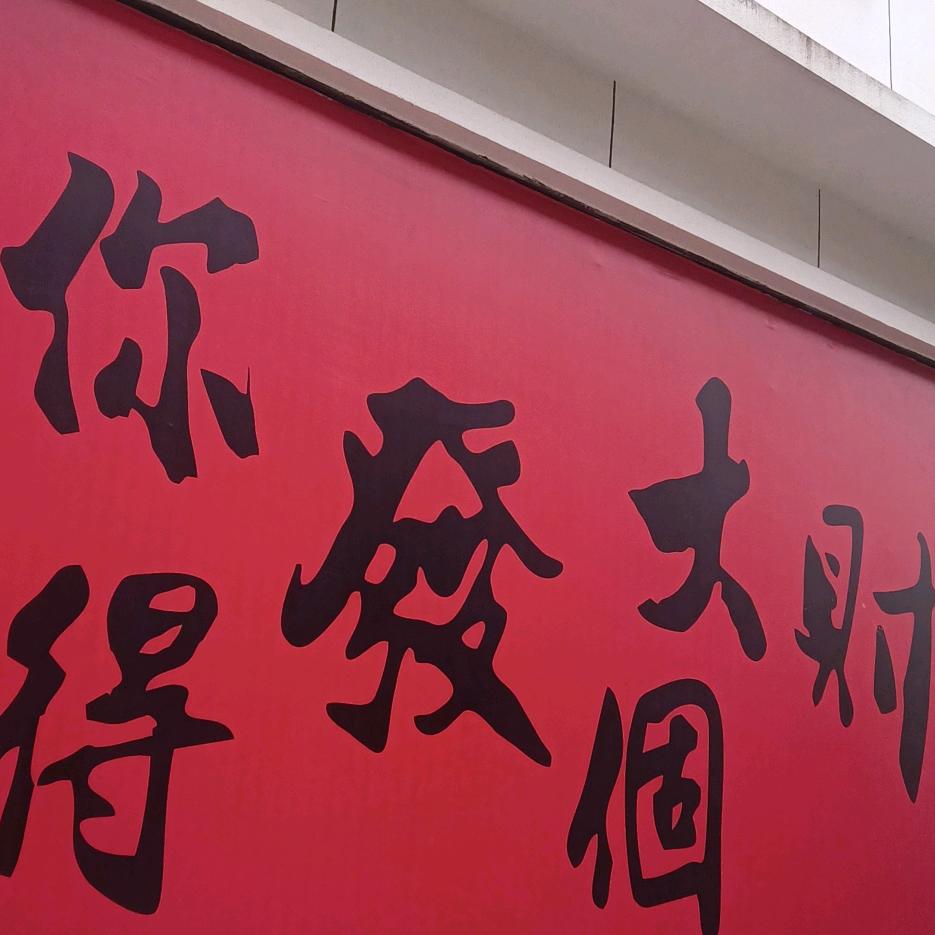 你發大財
得個